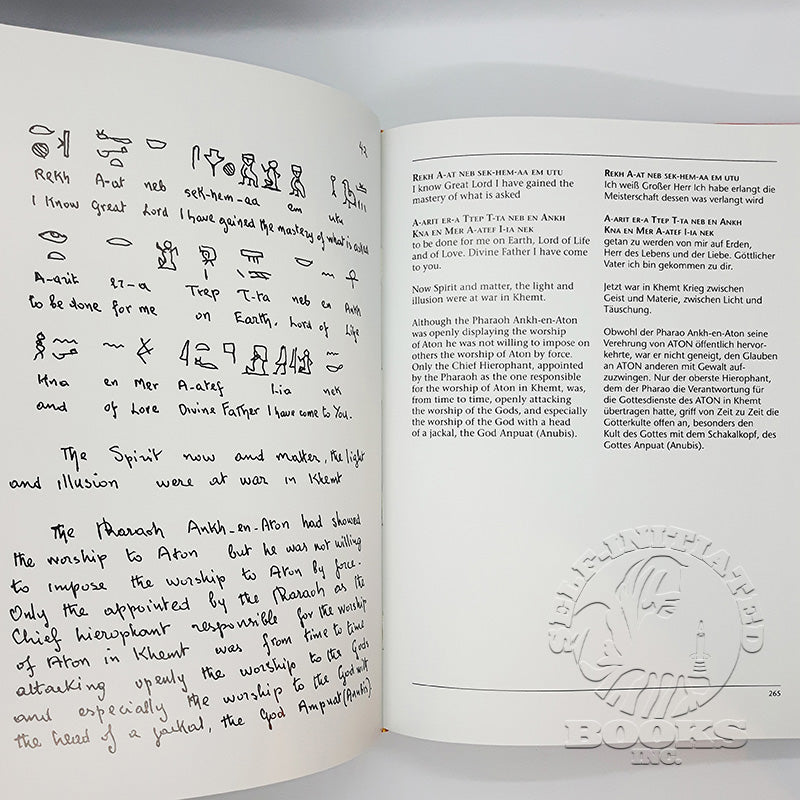 42
Rekh A-at neb sek-hem-aa em utu
I know Great Lord I have gained the mastery of what is asked
A-arit er-a Ttep T-ta neb en Ankh
to be done for me on Earth, Lord of Life
Kna en Mer A-atef I-ia nek
and of Love Divine Father I have come to You.
The Spirit now and matter, the light
and illusion were at war in Khemt
The Pharaoh Ankh-en-Aton had showed
the worship to Aton but he was not willing
to impose the worship to Aton by force.
Only the appointed by the Pharaoh as the
Chief hierophant responsible for the worship
of Aton in Khemt was from time to time
attacking openly the worship to the Gods
and especially the worship to the God with
the head of a jackal, the God Ampuat (Anubis).
Rekh A-at neb sek-hem-aa em utu
I know Great Lord I have gained the
mastery of what is asked
A-arit er-a Ttep T-ta neb en Ankh
Kna en Mer A-atef I-ia nek
to be done for me on Earth, Lord of Life
and of Love. Divine Father I have come
to you.
Now Spirit and matter, the light and
illusion were at war in Khemt.
Although the Pharaoh Ankh-en-Aton
was openly displaying the worship
of Aton he was not willing to impose on
others the worship of Aton by force.
Only the Chief Hierophant, appointed
by the Pharaoh as the one responsible
for the worship of Aton in Khemt, was,
from time to time, openly attacking
the worship of the Gods, and especially
the worship of the God with a head
of a jackal, the God Anpuat (Anubis).
Rekh A-at neb sek-hem-aa em utu
Ich weiß Großer Herr Ich habe erlangt die
Meisterschaft dessen was verlangt wird
A-arit er-a Ttep T-ta neb en Ankh
Kna en Mer A-atef I-ia nek
getan zu werden von mir auf Erden,
Herr des Lebens und der Liebe. Göttlicher
Vater ich bin gekommen zu dir.
Jetzt war in Khemt Krieg zwischen
Geist und Materie, zwischen Licht und
Täuschung.
Obwohl der Pharao Ankh-en-Aton seine
Verehrung von ATON öffentlich hervor-
kehrte, war er nicht geneigt, den Glauben
an ATON anderen mit Gewalt auf-
zuzwingen. Nur der oberste Hierophant,
dem der Pharao die Verantwortung für
die Gottesdienste des ATON in Khemt
übertragen hatte, griff von Zeit zu Zeit die
Götterkulte offen an, besonders den
Kult des Gottes mit dem Schakalkopf, des
Gottes Anpuat (Anubis).
265
SELF-INITIATED
BOOKS
INC.